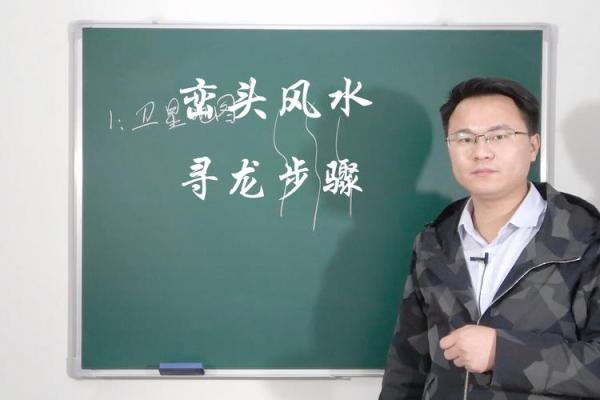 峦头风水
1:卫星地图
寻龙步骤